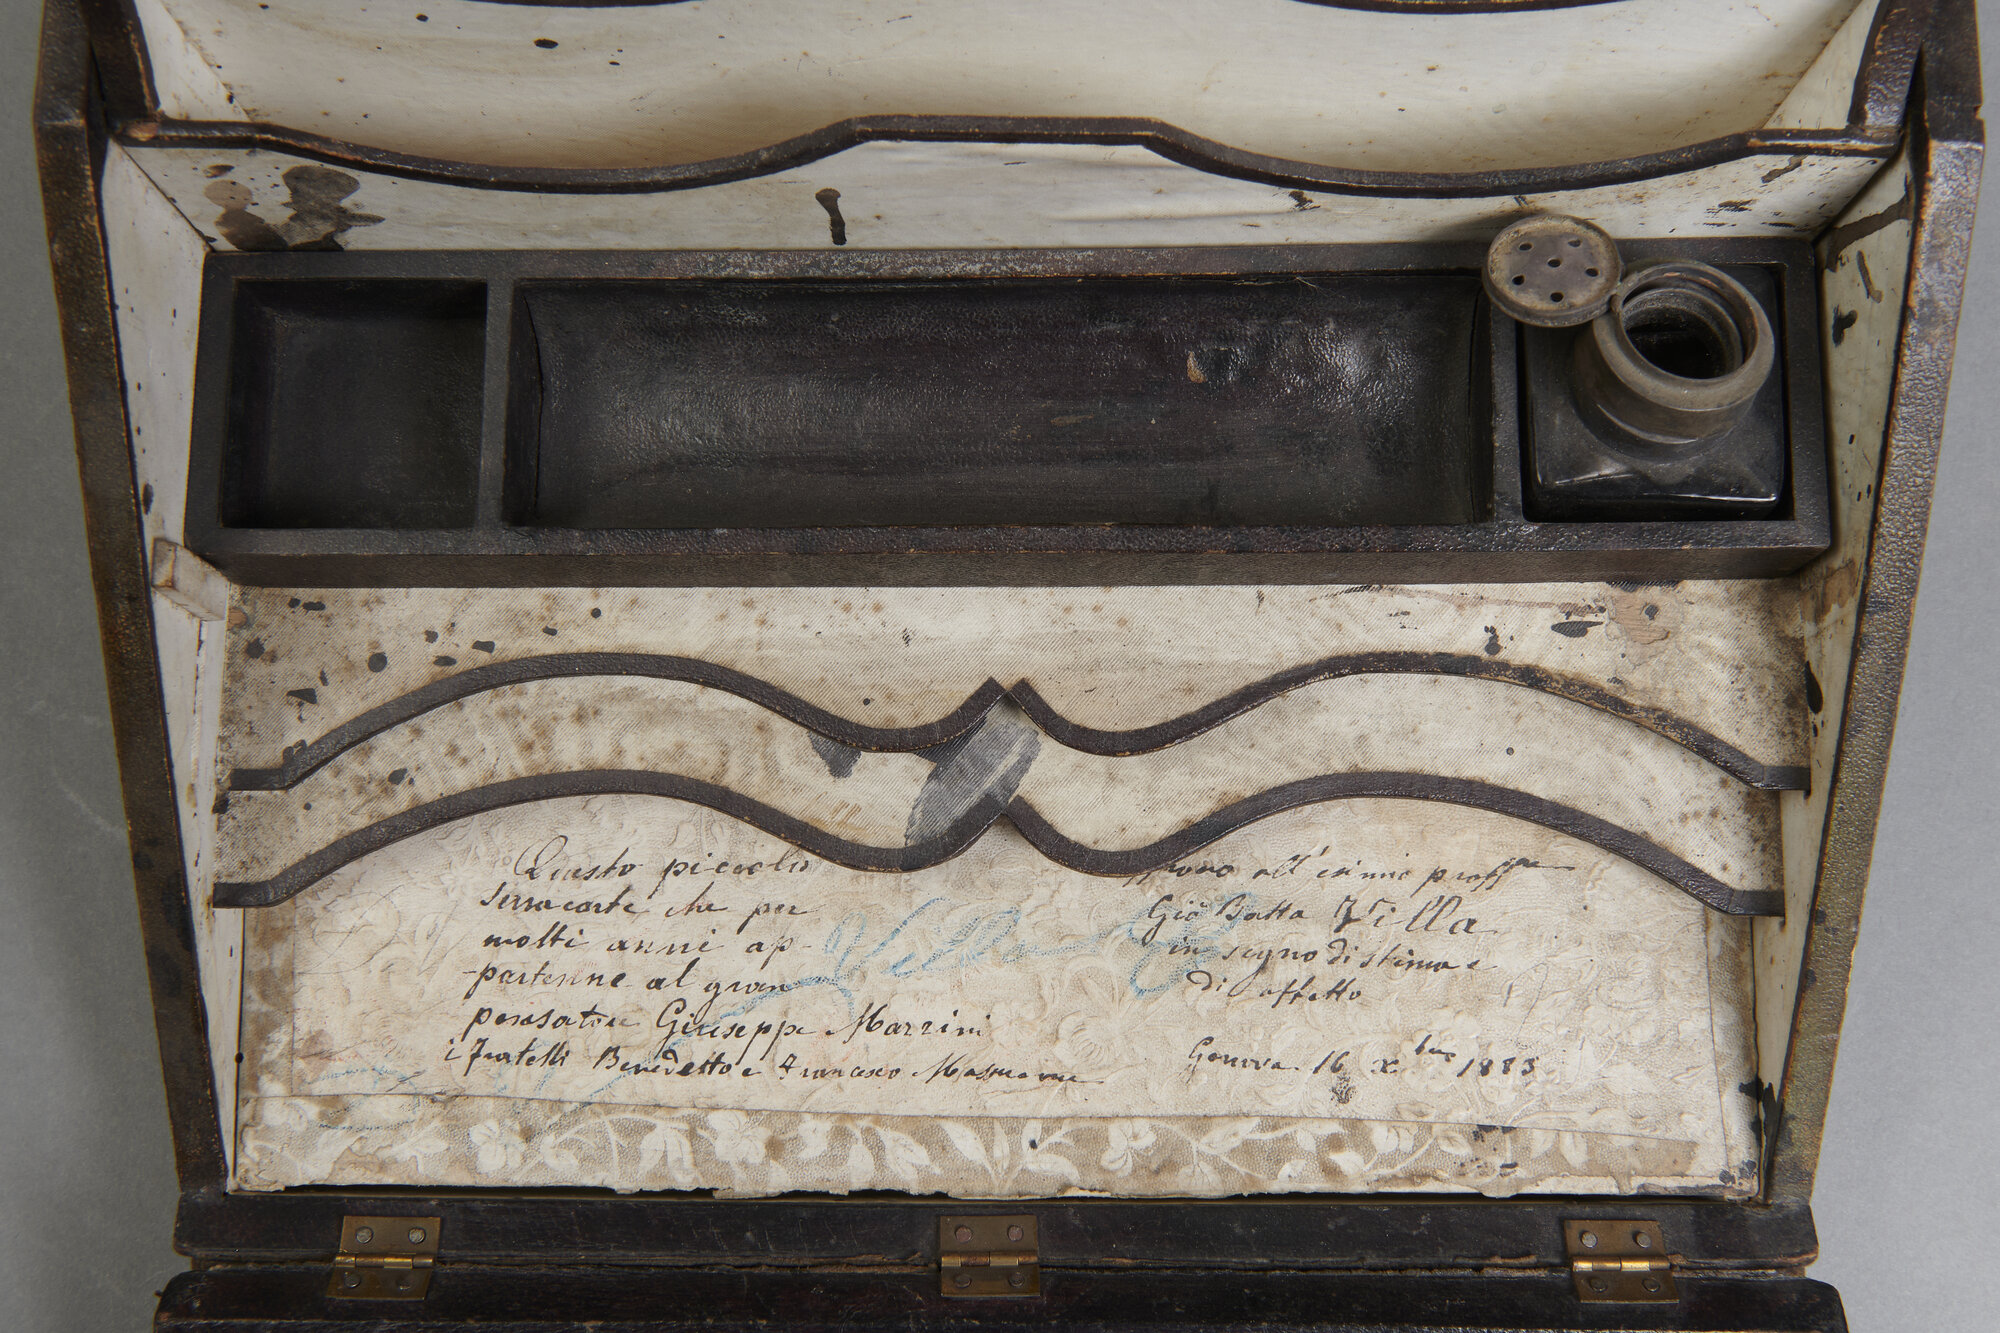 Questo piccolo
serracarte che per
molti anni ap-
-partenne al gran
pensatore Giuseppe Mazzini
i fratelli Benedetto e Francesco
all'esimio
Gio Batta Villa
in segno di stima e
di affetto
Genova 16 Xbre 1883